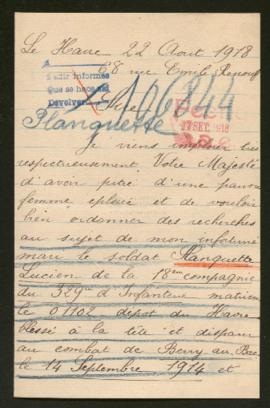 Le Havre 22 Aout 1918
68 rue Emile Renouf
Pedir informes
Que se hace
Devolver
Sire
106844
27 DEC. 1918
Planquette
Je viens implorer très
respectueusement Votre Majesté
d'avoir pitié d'une pauvre
femme éplorée et de vouloir
bien ordonner des recherches
au sujet de mon infortuné
mari le soldat Planquette
Lucien de la 18eme compagnie
du 329me d'Infanterie matricule
le 01102 depot du Havre
blessé à la tête et disparu
au combat de Berry au Bac
le 14 Septembre 1914 et